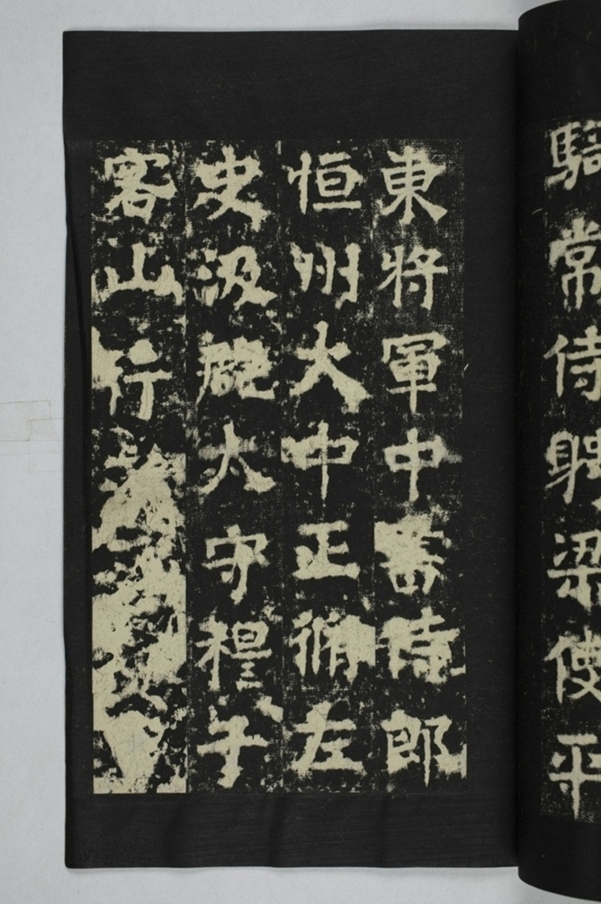 騎常侍聘梁使平
東將軍中書侍郎
恒州大中正脩左
史汲郡太守穆子
客山行